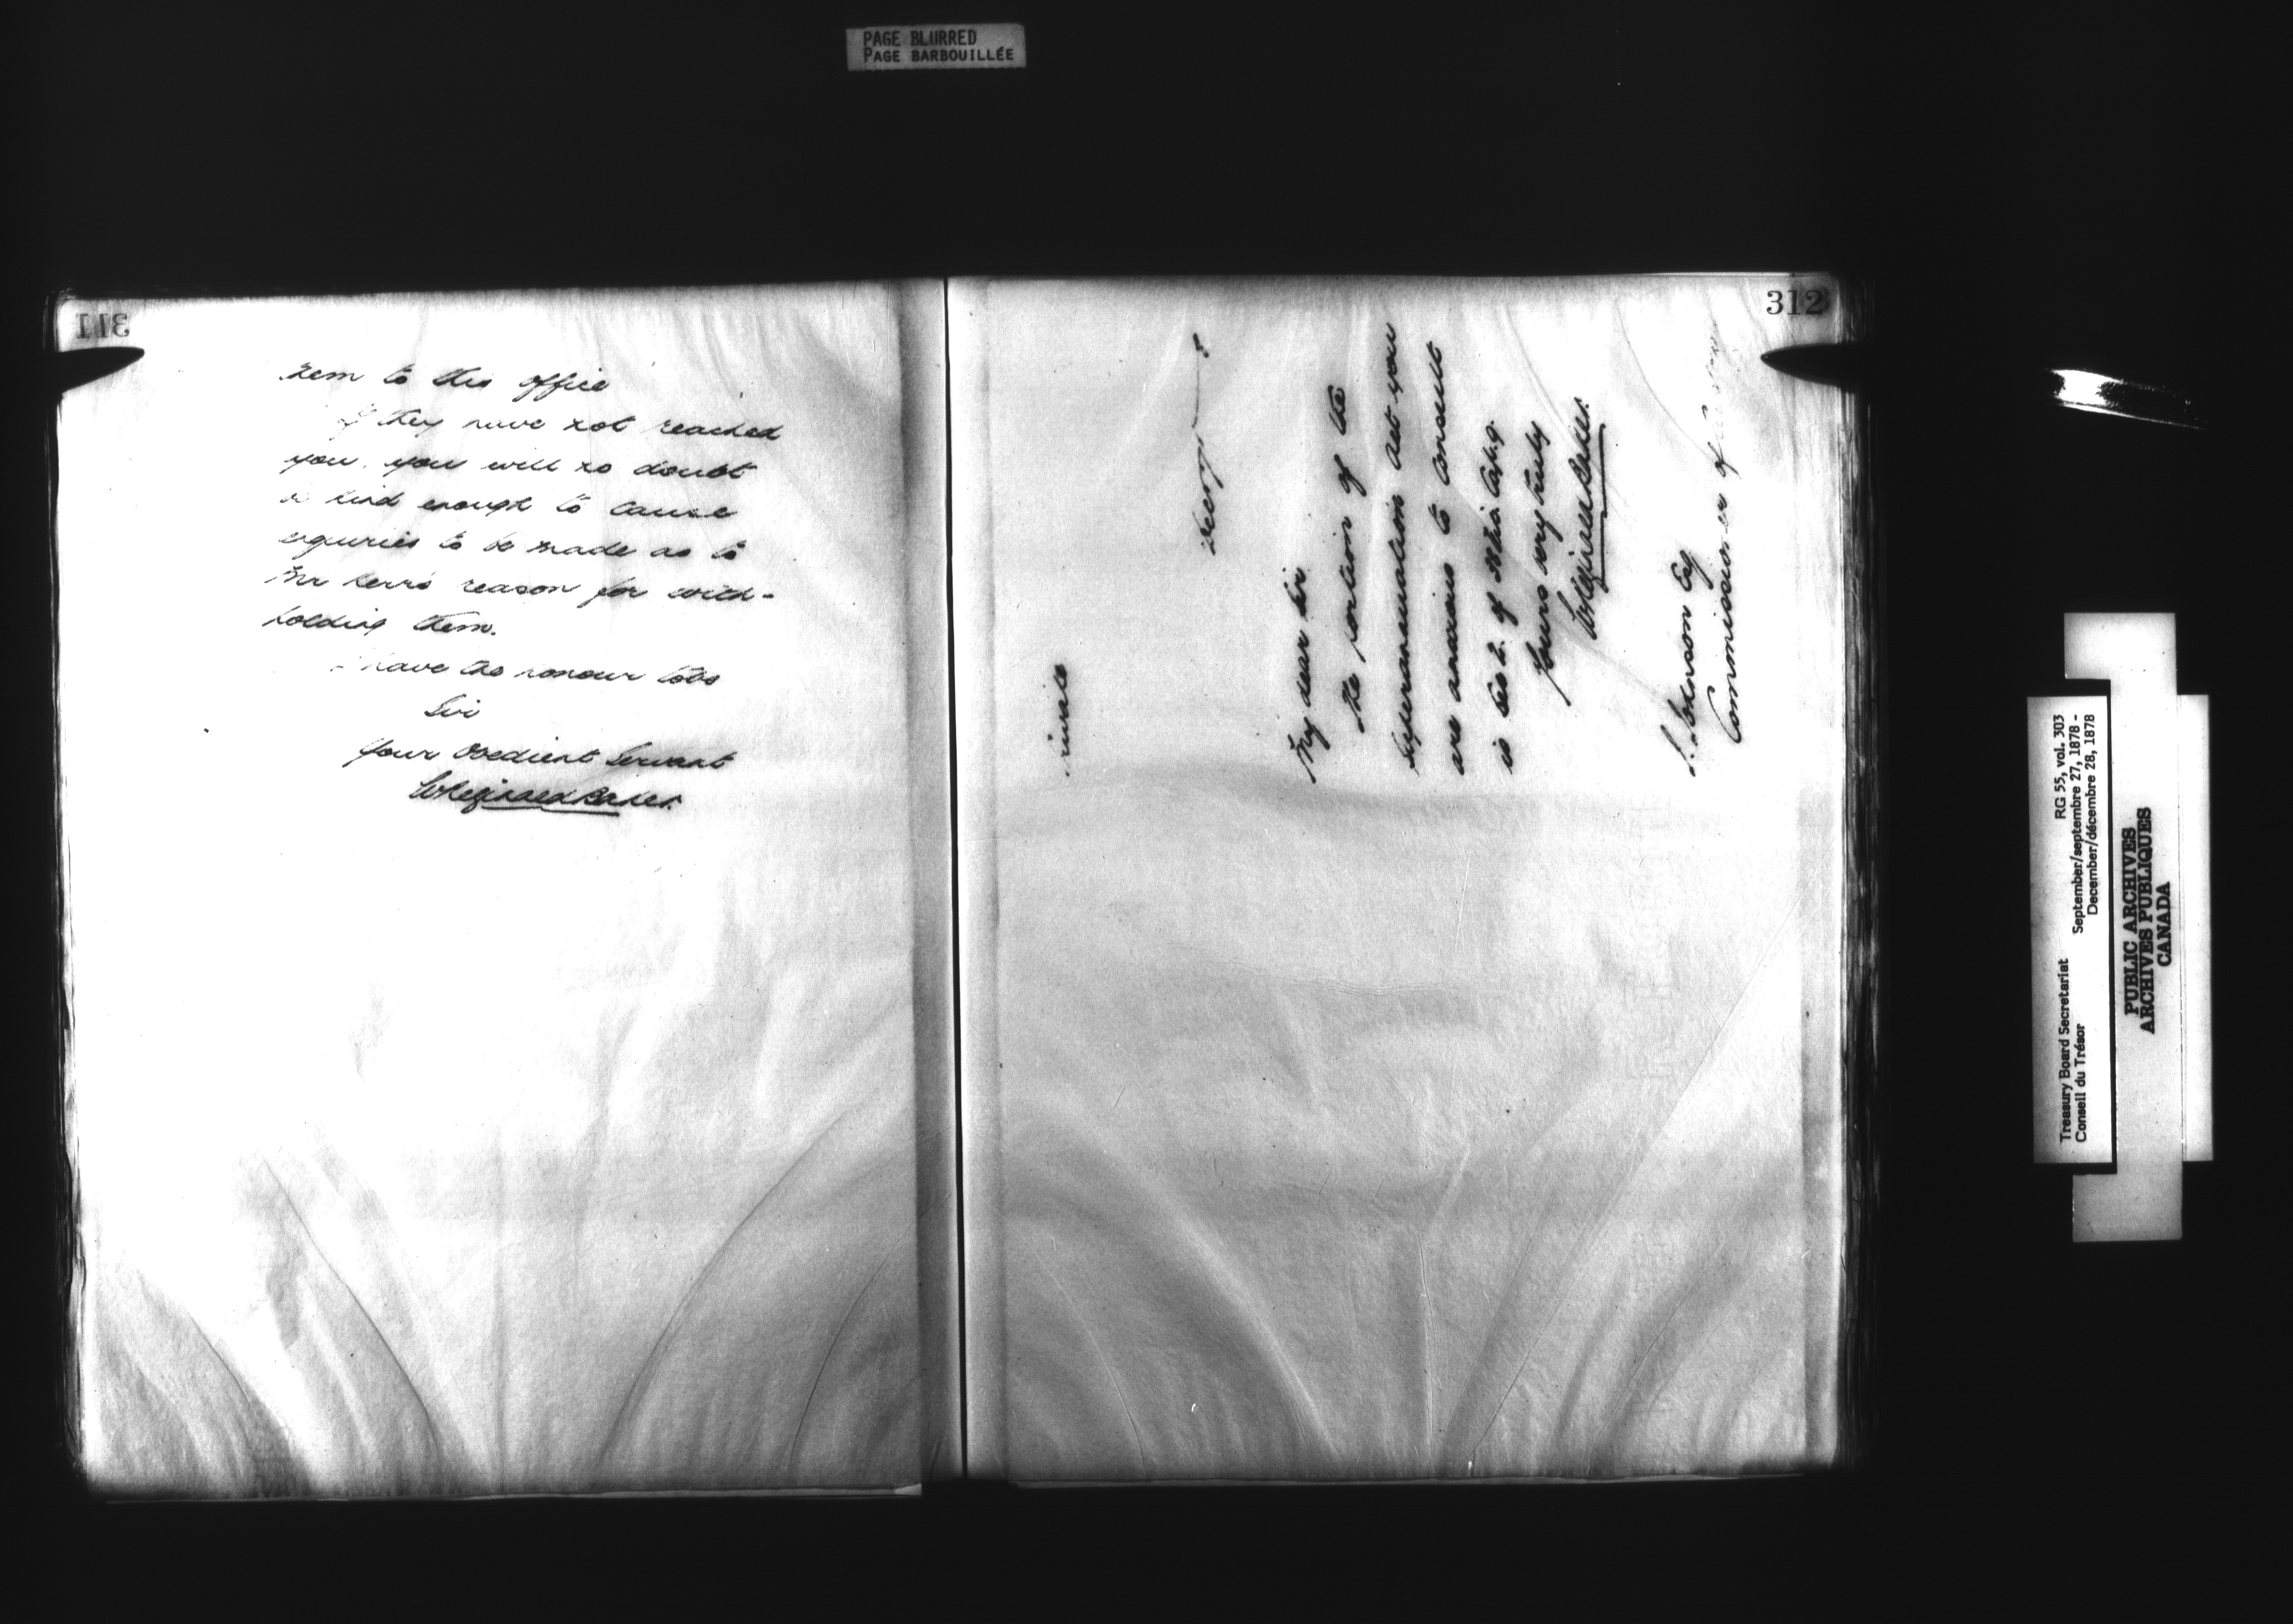 PAGE BLURRED
PAGE BARBOUILLÉE
311
them to this office
If they have not reached
you, you will no doubt
be kind enough to cause
enquiries to be made as to
Mr Kerr's reason for with-
holding them.
I have the honour to be
Sir
Your Obedient Servant
W Reginald Baker
312
Private
My dear Sir
The portion of the
Superannuation Act you
are anxious to consult
is Sec 2. of
Yours very truly
W Reginald Baker
J. Johnson Esq
Commissioner of Customs
Treasury Board Secretariat RG 55, vol. 303
Conseil du Trésor September/septembre 27, 1878 -
December/décembre 28, 1878
PUBLIC ARCHIVES
ARCHIVES PUBLIQUES
CANADA